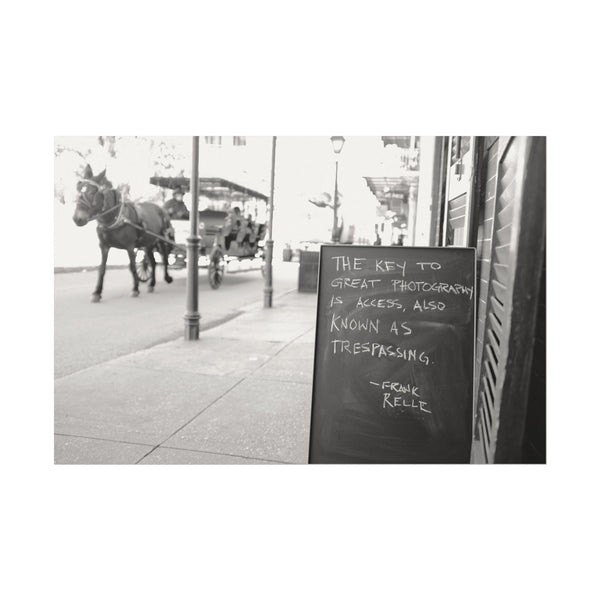 THE KEY TO
GREAT PHOTOGRAPHY
IS ACCESS, ALSO
KNOWN AS
TRESPASSING.
—FRANK
RELLE